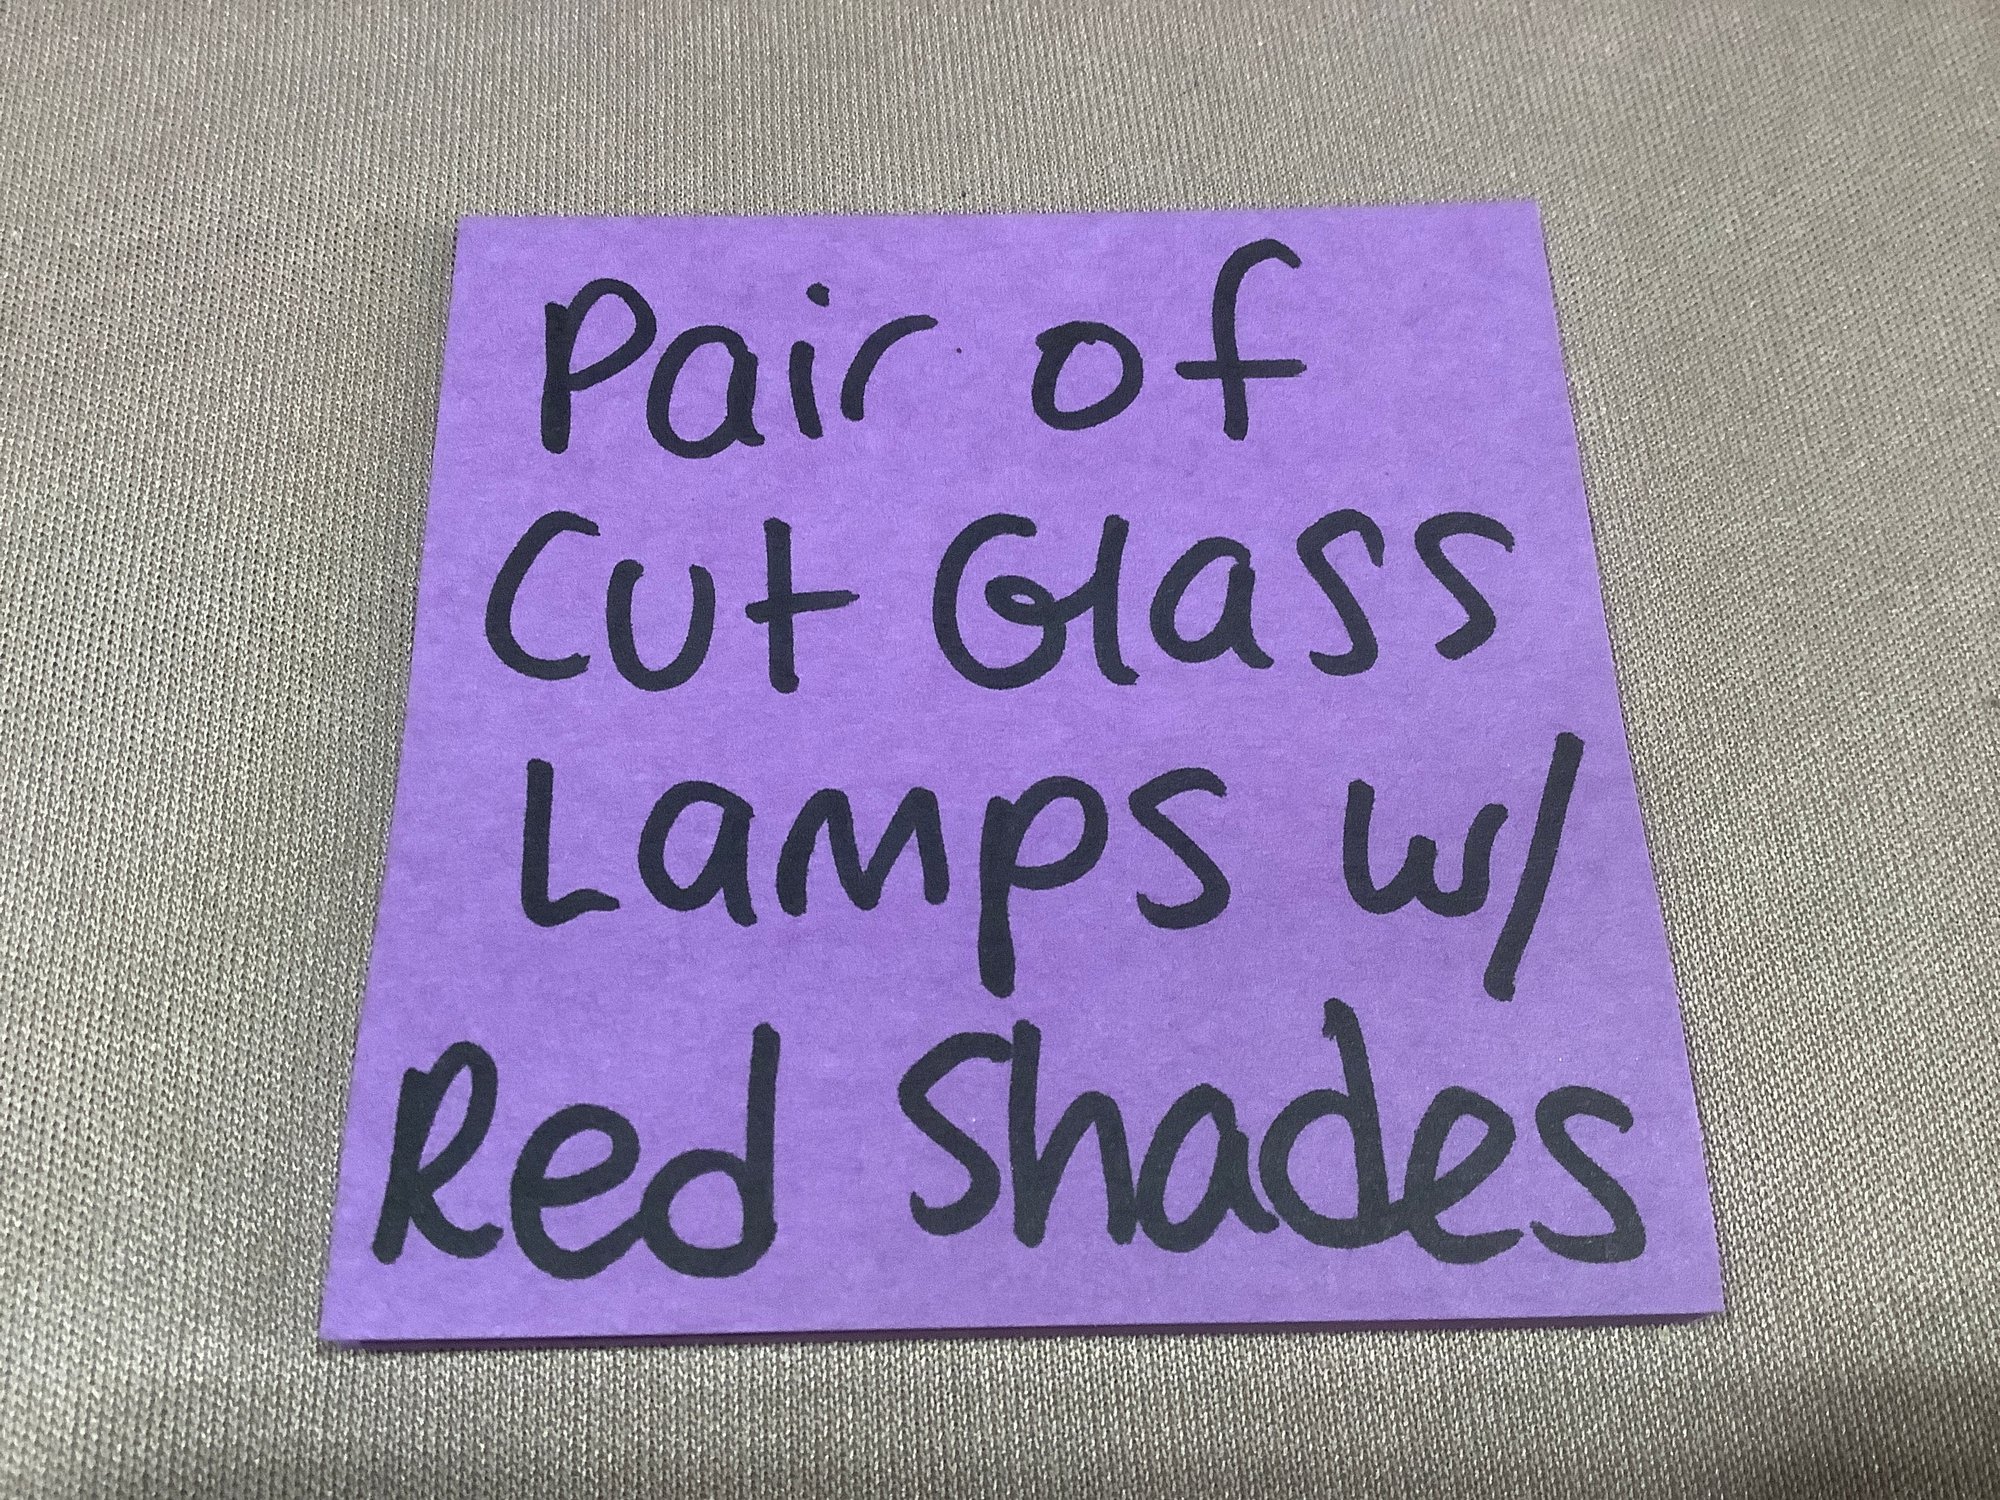 Pair of
Cut Glass
Lamps w/
Red Shades